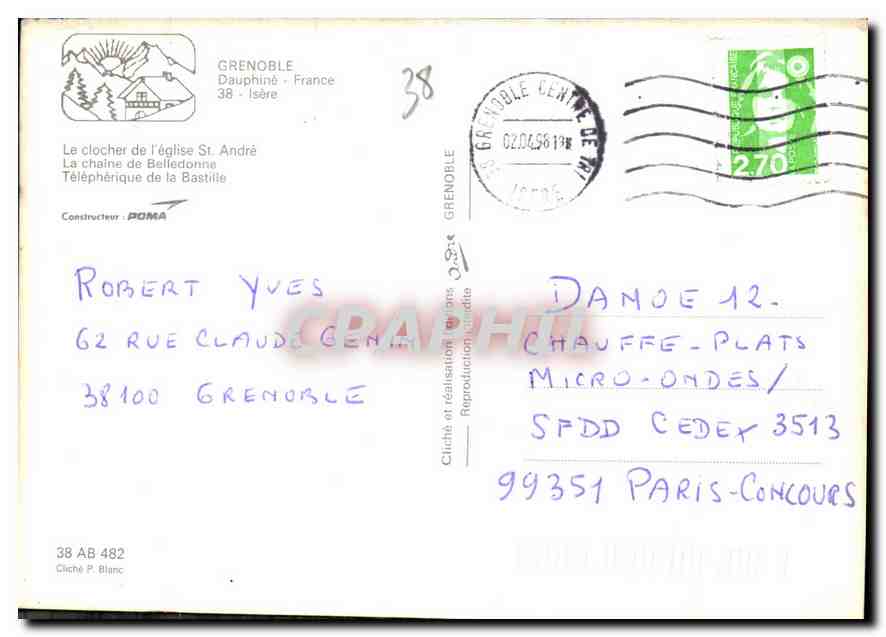 GRENOBLE
Dauphiné - France
38 - Isère
38
Le clocher de l'église St. André
La chaîne de Belledonne
Téléphérique de la Bastille
Constructeur : POMA
38 GRENOBLE CENTRE DE TRI
02.04.96 19H
ISERE
REPUBLIQUE FRANCAISE
2.70
LA POSTE
ROBERT YVES
62 RUE CLAUDE GENIN
38100 GRENOBLE
CPARHIL
Cliché et réalisation Editions
GRENOBLE
Reproduction interdite
DANOE 12.
CHAUFFE-PLATS
MICRO-ONDES/
SFDD CEDEX 3513
99351 PARIS-CONCOURS
38 AB 482
Cliché P. Blanc